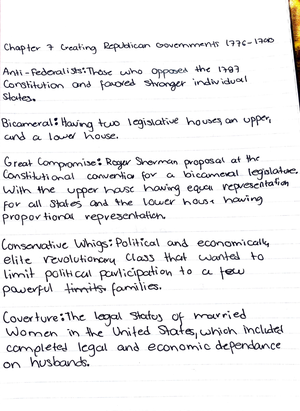 Chapter 7 Creating Republican Governments 1776-1790
Anti-Federalists: Those who opposed the 1787
Constitution and favored stronger individual
States.
Bicameral: Having two legislative houses, an upper,
and a lower house.
Great Compromise: Roger Sherman proposal at the
Constitutional convention for a bicameral legislature.
With the upper house having equal representation
for all States and the lower house having
proportional representation.
Conservative Whigs: Political and economically
elite revolutionary class that wanted to
limit political participation to a few
powerful families.
Coverture: The legal status of married
Women in the United States, which included
completed legal and economic dependance
on husbands.